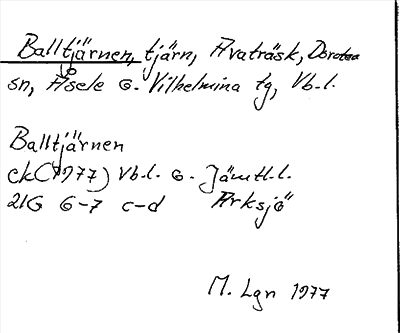 Balltjärnen, tjärn, Avaträsk, Dorotea
sn, Åsele o. Vilhelmina tg, Vb.l.
Balltjärnen
ek(1977) Vb.l. o. Jämtl.l.
21G 6-7 c-d Arksjö
M. Lgn 1977